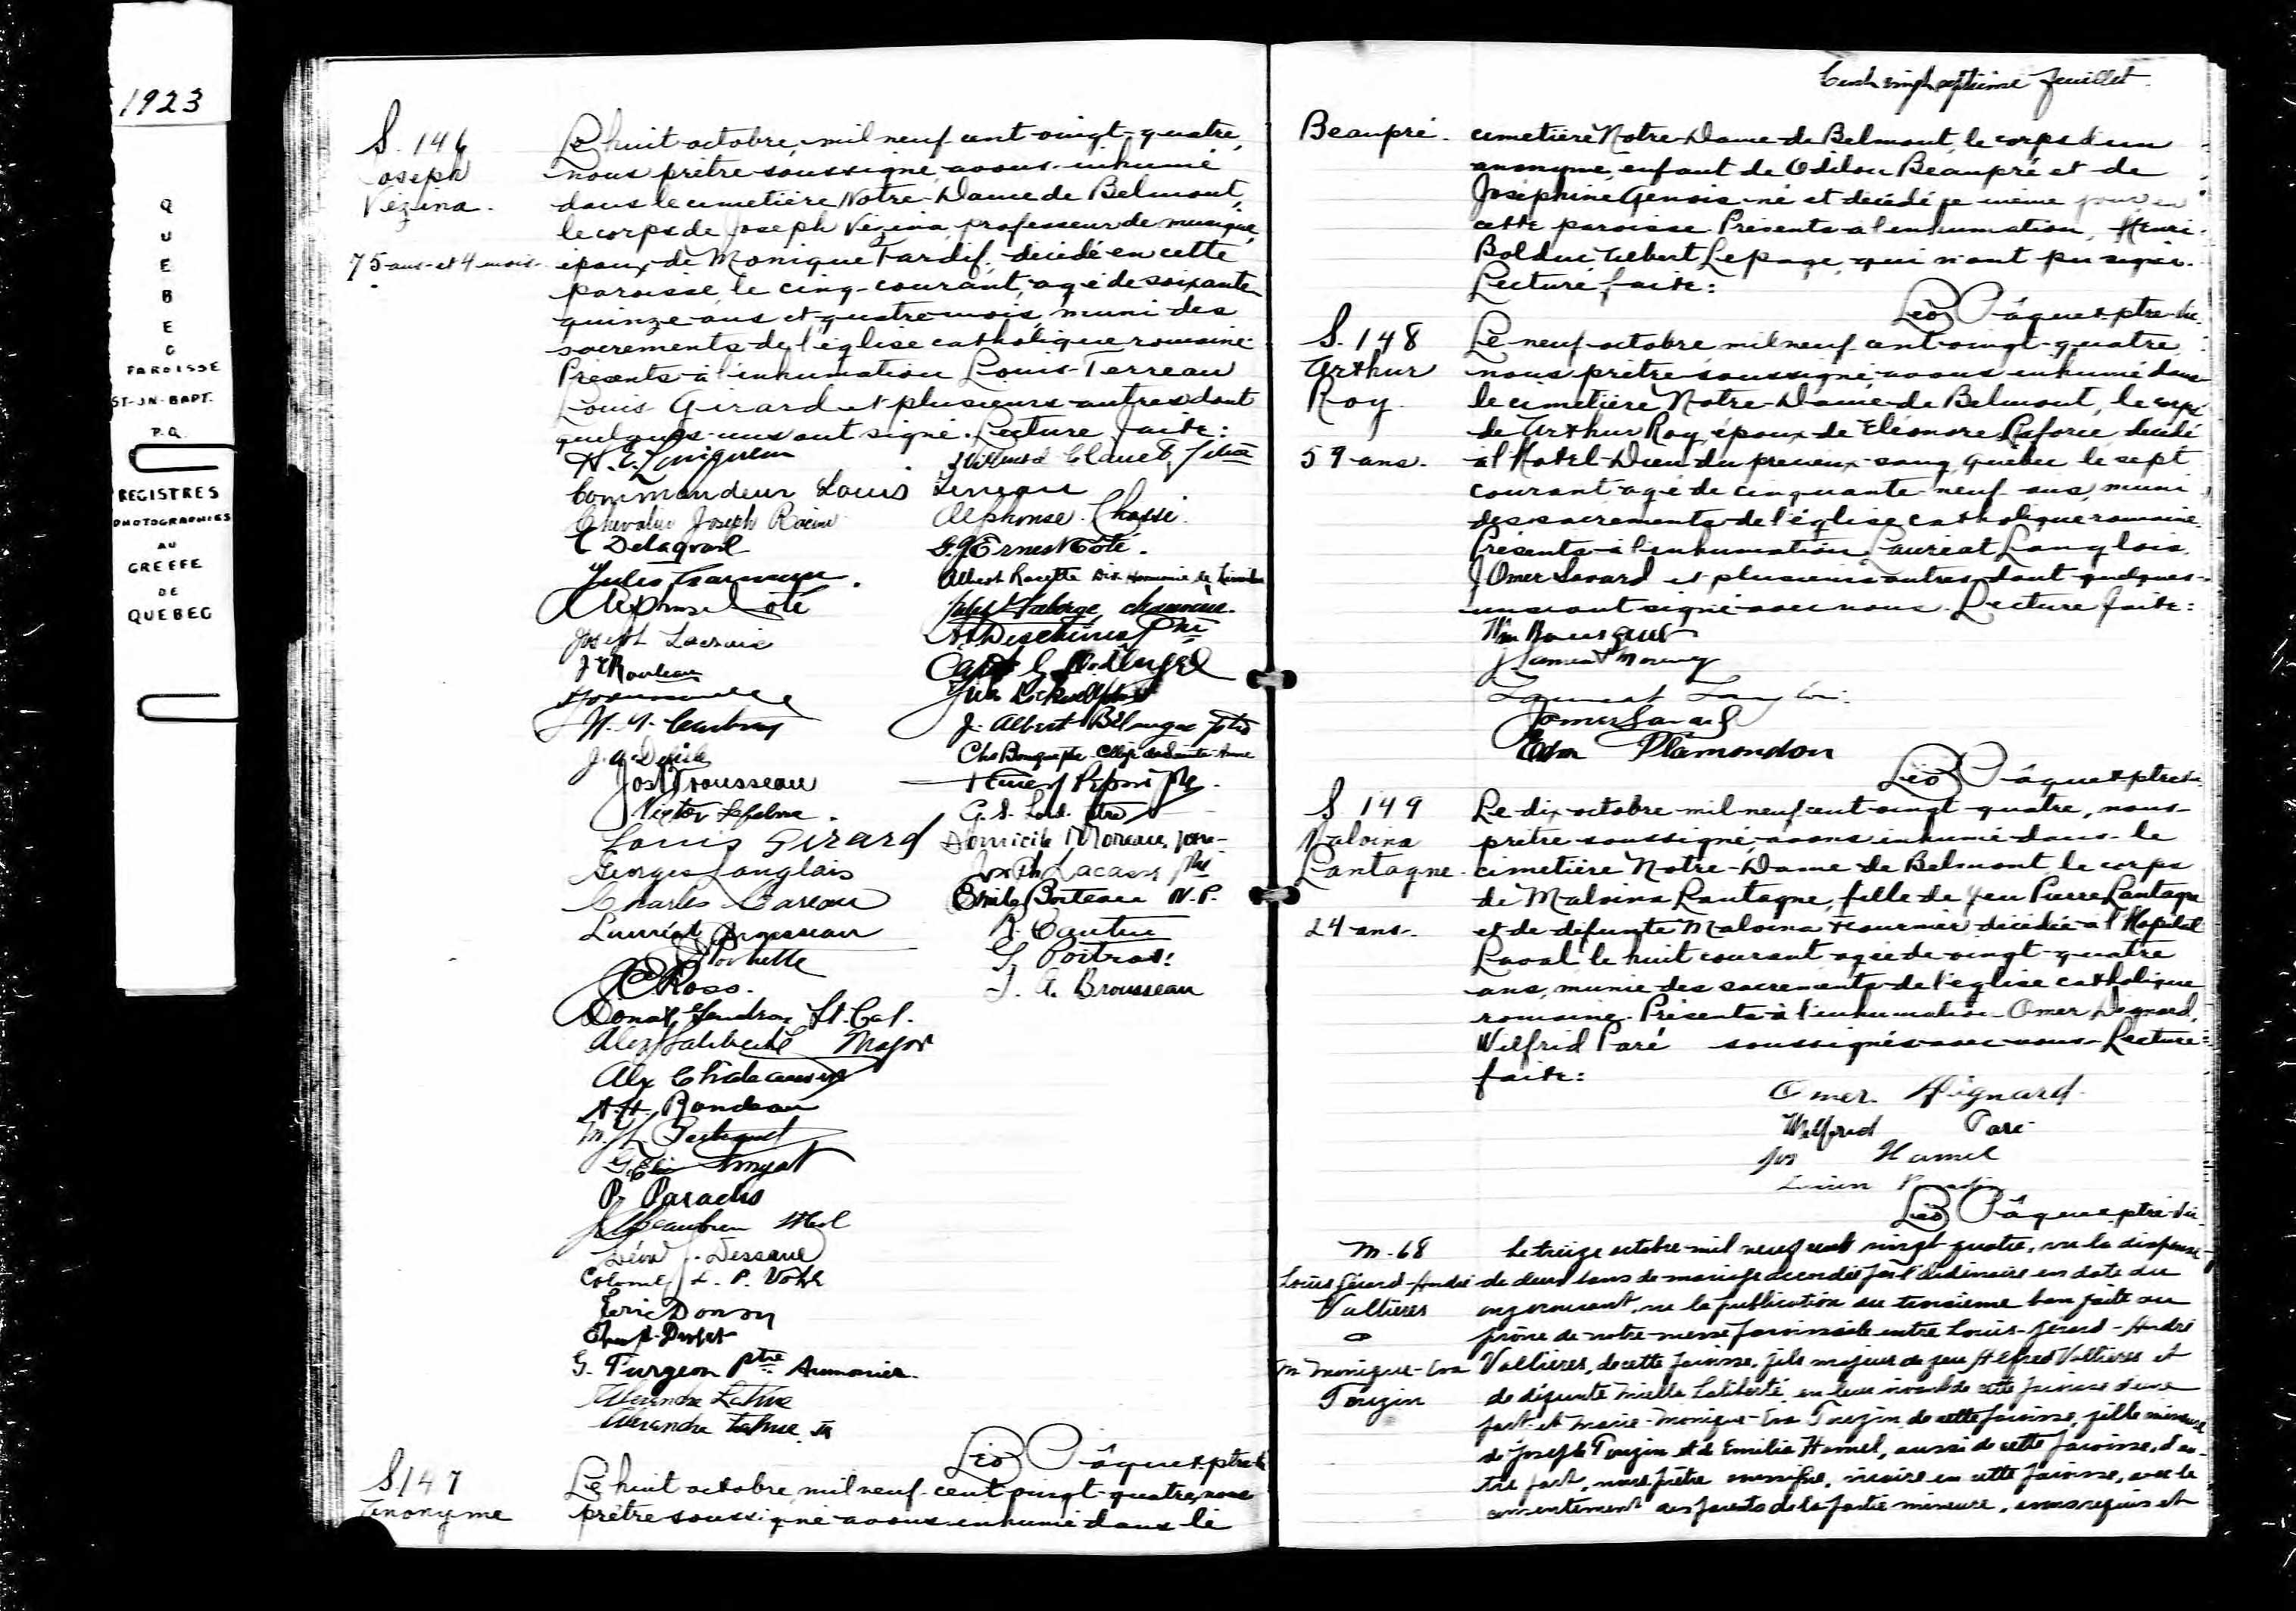 1923
QUEBEC
PAROISSE
ST-JN-BAPT.
P.Q.
REGISTRES
PHOTOGRAPHIES
AU
GREFFE
DE
QUEBEC
S. 146
Joseph
Vézina.
75 ans et 4 mois.
Le huit octobre, mil neuf cent vingt-quatre,
nous prêtre soussigné, avons inhumé
dans le cimetière Notre-Dame de Belmont,
le corps de Joseph Vézina, professeur de musique,
époux de Monique Tardif, décédé en cette
paroisse, le cinq courant, agé de soixante
quinze ans et quatre mois, muni des
sacrements de l'église catholique romaine.
Présents à l'inhumation Louis Terreau
Louis Girard et plusieurs autres dont
quelques-uns ont signé. Lecture faite:
Commandeur Louis Terreau
Chevalier Joseph Racine
Alphonse Chassé.
J. Ernest Côté.
Alphonse Côté
Joseph Lacroix
J. Albert Bélanger ptre
Jos Brousseau
Victor Lefebvre.
G. S. Lord. ptre
Louis Girard
Domicile Moreau,
Georges Langlais
Joseph Lacasse ptre
Charles Careau
Emile Boiteau N. P.
Lauréat Brousseau
G. Poitras.
Ross.
J. A. Brousseau
Donat Gendron Lt. Col.
Alex Laliberté Major
A. H. Rondeau
P. Paradis
Léon J. Dessane
Colonel L. P. Vohl
Eric Doran
G. Turgeon Ptre Aumonier.
Alexandre Larue
Alexandre Larue Jr
Léo Pâquet ptre vic.
S 147
Anonyme
Le huit octobre, mil neuf cent vingt-quatre, nous
prêtre soussigné avons inhumé dans le
Cent vingt septième feuillet.
Beaupré.
cimetière Notre-Dame de Belmont, le corps d'un
anonyme, enfant de Odilon Beaupré et de
Joséphine Genois né et décédé ce même jour en
cette paroisse. Présents à l'inhumation, Henri
Bolduc, Lepage, qui n'ont pu signer.
Lecture faite:
Léo Pâquet ptre vic.
S. 148
Arthur
Roy.
59 ans.
Le neuf octobre mil neuf cent vingt-quatre
nous prêtre soussigné, avons inhumé dans
le cimetière Notre-Dame de Belmont, le corps
de Arthur Roy, époux de Eléonore Laforce décédé
à l'Hotel-Dieu du précieux-sang, Québec le sept
courant agé de cinquante-neuf ans, muni
des sacrements de l'église catholique romaine.
Présents à l'inhumation, Lauréat Langlois,
J Omer Savard et plusieurs autres dont quelques-
uns ont signé avec nous. Lecture faite:
Wm Bousquet
Lauréat Langlois
J Omer Savard
Plamondon
Léo Pâquet ptre vic.
S 149
Malvina
Lantagne.
24 ans.
Le dix octobre mil neuf cent vingt-quatre, nous
prêtre soussigné, avons inhumé dans le
cimetière Notre-Dame de Belmont le corps
de Malvina Lantagne, fille de feu Pierre Lantagne
et de défunte Malvina Fournier décédée à l'Hopital
Laval, le huit courant agée de vingt-quatre
ans, munie des sacrements de l'église catholique
romaine. Présents à l'inhumation Omer Dignard,
Wilfrid Paré soussignés avec nous. Lecture
faite:
Omer Dignard.
Wilfrid Paré
Jos Hamel
Léo Pâquet ptre vic.
M-68
Louis Gérard-André
Vallières
&
M Monique-Eva
Turgin
Le treize octobre mil neuf cent vingt-quatre, vu la dispense
de deux bans de mariage accordée par l'Ordinaire en date du
onze courant, vu la publication du troisième ban faite au
prône de notre messe paroissiale entre Louis-Gérard-André
Vallières, de cette paroisse, fils majeur de feu Alfred Vallières et
de défunte Laliberté, en leur vivant de cette paroisse d'une
part et Marie-Monique-Eva de cette paroisse, fille mineure
de Joseph et de Emilie Hamel, aussi de cette paroisse, d'au-
tre part, nous prêtre soussigné, vicaire en cette paroisse, avec le
consentement des parents de la partie mineure, avons requis et